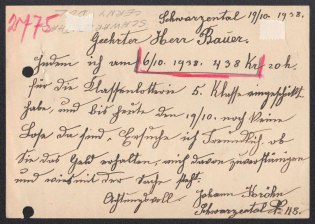 2475
Schwarzental 19/10. 1938.
Geehrter Herr Bauer.
Indem ich am 6/10. 1938. 438 Kč roh.
für die Klassenlotterie 5. Klasse eingeschickt
habe, und bis heute den 19/10. noch keine
Lose da sind, Ersuche ich Freundlich, ob
Sie das Geld erhalten, mich davon zu verständigen
und wie es mit der Sache steht.
Achtungsvoll Johann
Schwarzental № 48.